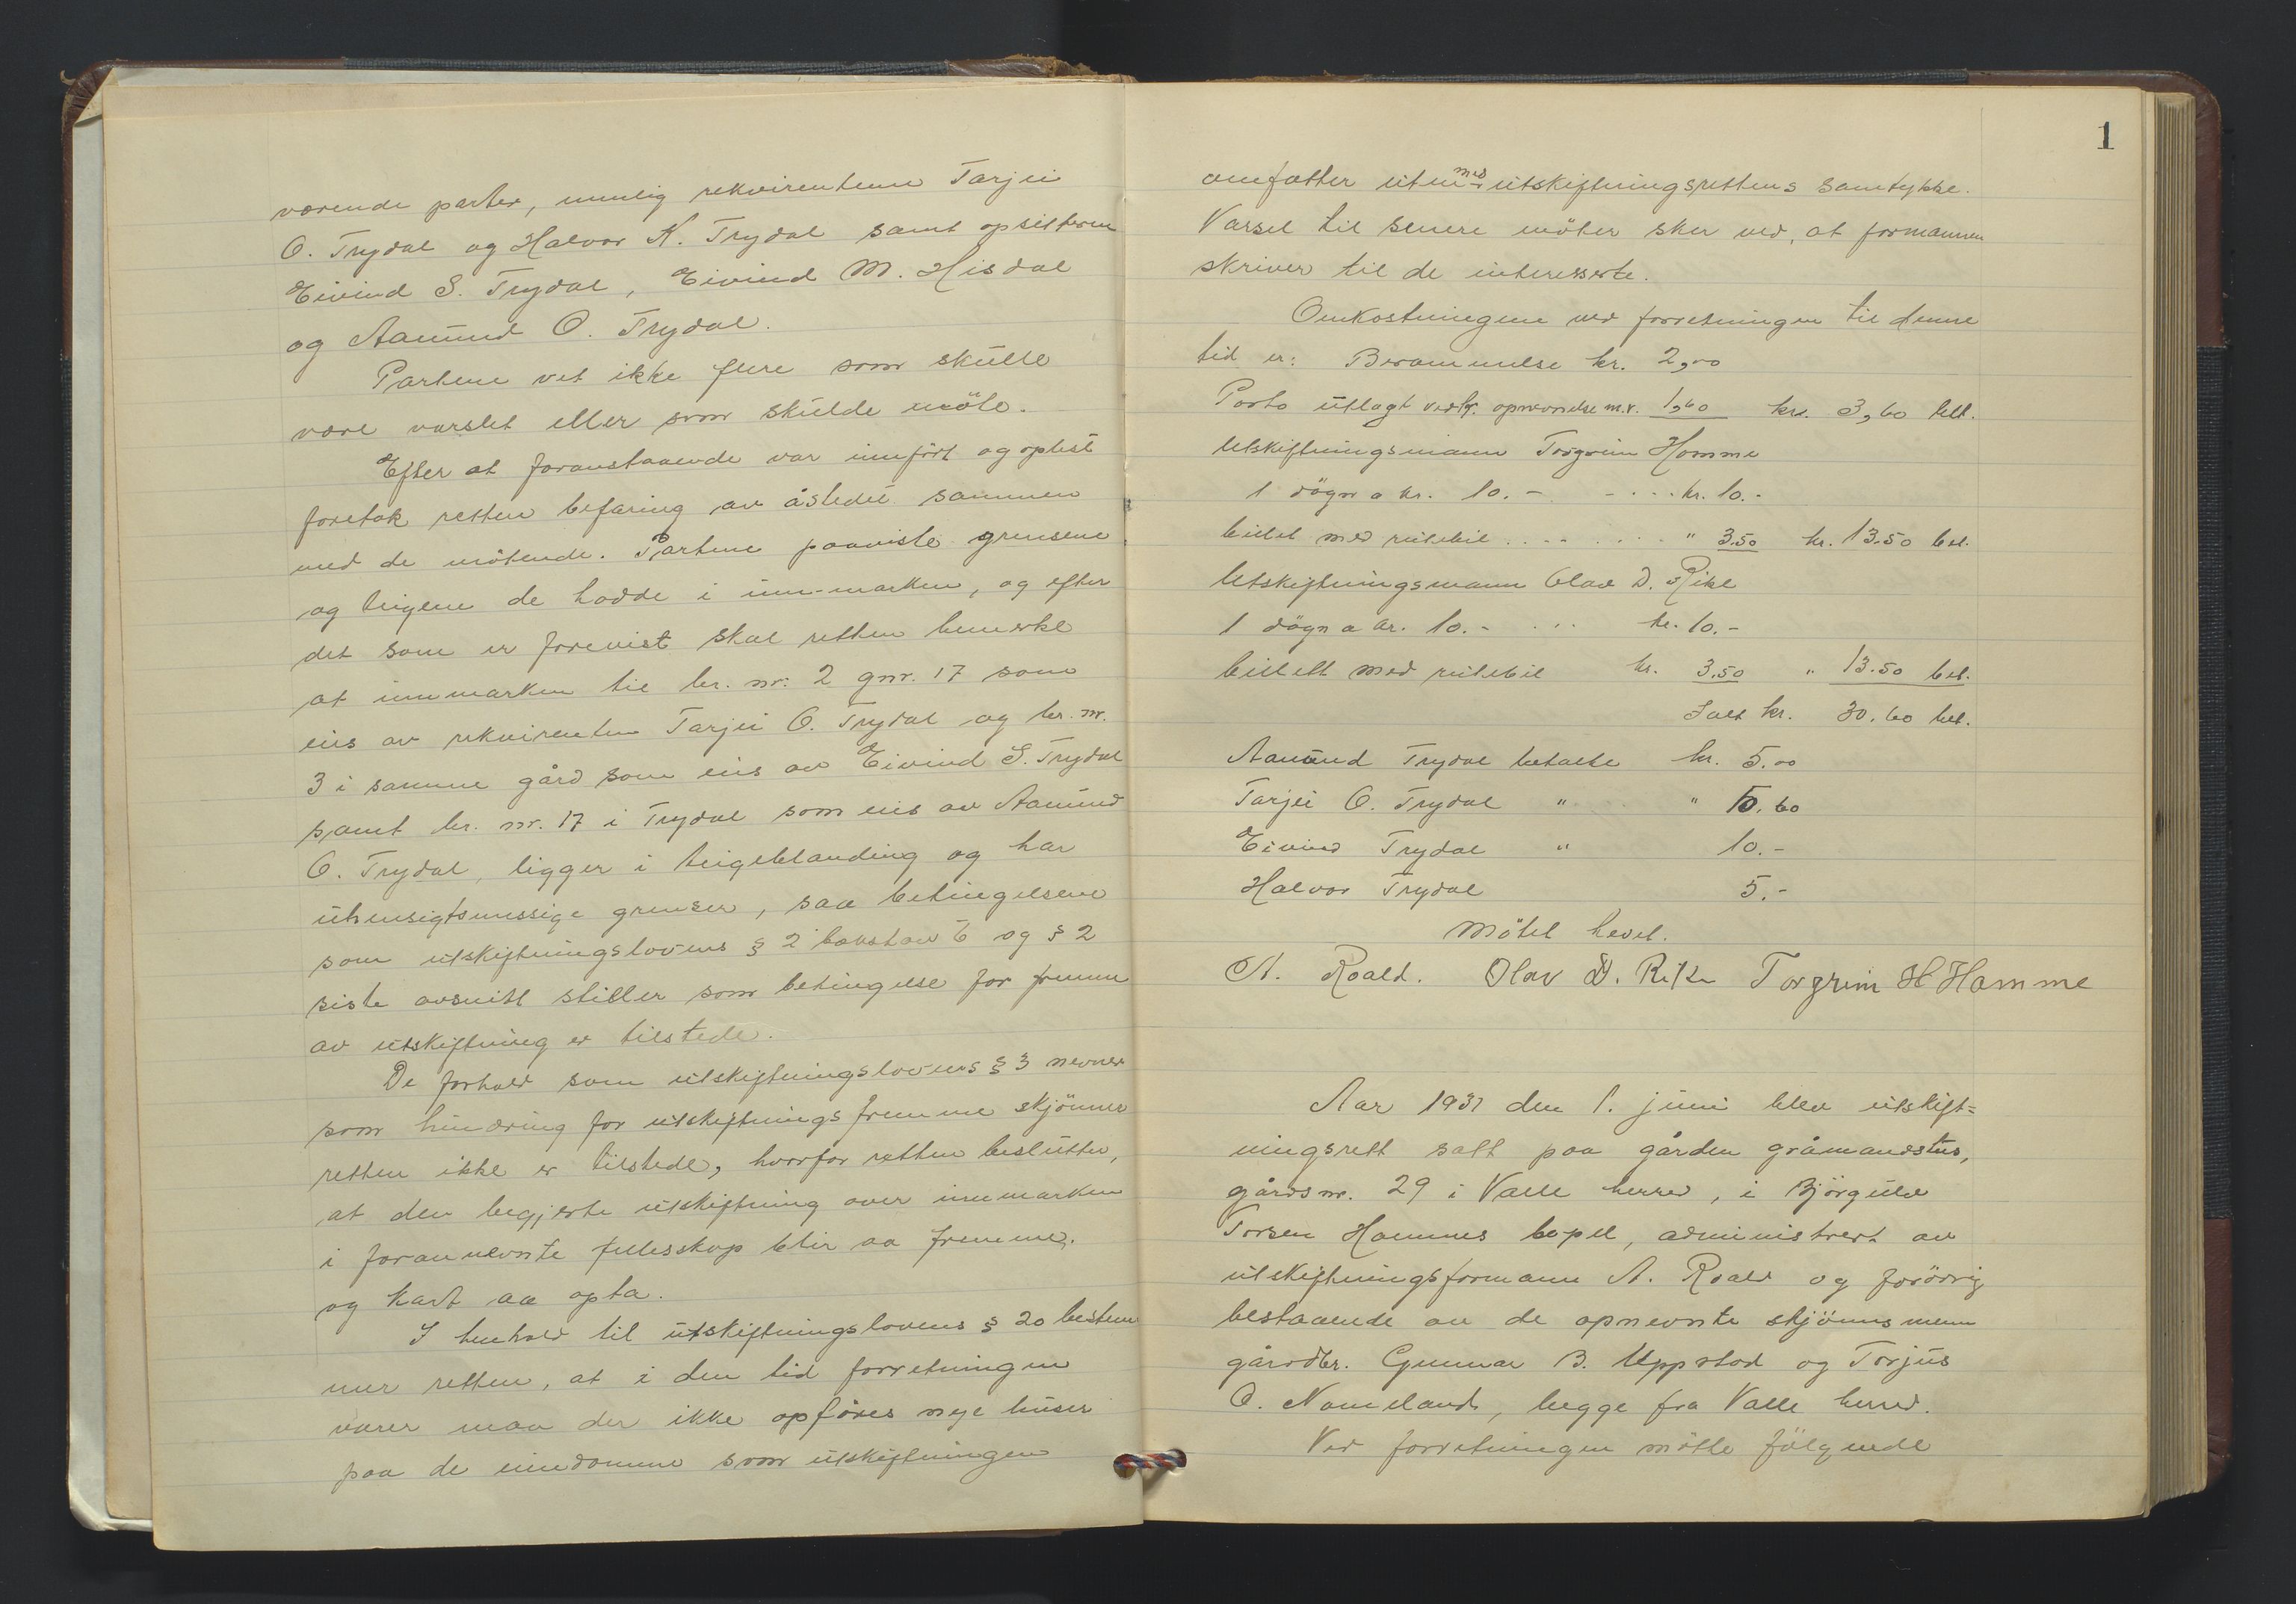 værende parter, nemlig rekvirentene Tarjei
O. Trydal og Halvor K. Trydal samt opsitteren
Eivind S. Trydal, Eivind M. Hisdal
og Aamund O. Trydal.
Partene vet ikke flere som skulle
være varslet eller som skulde møte.
Efter at foranstaaende var innført og oplest
foretok retten befaring av åstedet sammen
med de møtende. Partene paaviste grensene
og teigene de hadde i inn-marken, og efter
det som er forevist skal retten bemerke
at innmarken til br. nr. 2 gnr. 17 som
eies av rekvirenten Tarjei O. Trydal og br. nr.
3 i samme gård som eies av Eivind S. Trydal
samt br. nr. 17 i Trydal som eies av Aamund
O. Trydal, ligger i teigeblanding og har
uhensigtsmessige grenser, saa betingelsene
som utskiftningslovens § 2 bokstav b og § 2
siste avsnitt stiller som betingelse for fremme
av utskiftning er tilstede.
De forhold som utskiftningslovens § 3 nevner
som hindring for utskiftnings fremme skjønner
retten ikke er tilstede, hvorfor retten beslutter,
at den begjerte utskiftning over innmarken
i forannevnte fellesskap blir aa fremme,
og kart aa opta.
I henhold til utskiftningslovens § 20 bestem
mer retten, at i den tid forretningen
varer maa der ikke opføres nye huser
paa de eiendomme som utskiftningen
1
omfatter uten med utskiftningsrettens samtykke.
Varsel til senere møter sker ved, at formannen
skriver til de interesserte.
Omkostningene ved forretningen til denne
tid er: Berammelse kr. 2,00
Porto utlagt vedr. opnevnelse m.v. 1,60 kr. 3,60 bet.
Utskiftningsmann Torgrim Homme
1 døgn a kr. 10.- - ... kr. 10.-
billet med rutebil ...... " 3.50 kr. 13.50 bet.
Utskiftningsmann Olav D. Rike
1 døgn a kr. 10.- ... kr. 10.-
billett med rutebil kr. 3.50 " 13.50 bet.
Ialt kr. 30.60 bet.
Aamund Trydal betalte kr. 5.00
Tarjei O. Trydal " " 10.60
Eivind Trydal " 10.-
Halvor Trydal 5.-
Møtet hevet.
A. Roald. Olav D. Rike Torgrim H Homme
Aar 1931 den 1. juni blev utskift=
ningsrett satt paa gården gråmandstus,
gårds nr. 29 i Valle herred, i Bjørgulv
Torsen Hommes bopel, administrert av
utskiftningsformann A. Roald og forøvrig
bestaaende av de opnevnte skjønnsmenn
gårdbr. Gunnar B. Uppstad og Torjus
O. Nomeland, begge fra Valle herred.
Ved forretningen møtte følgende